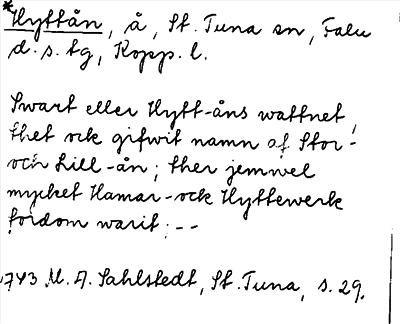 *Hyttån, å, St. Tuna sn, Falu
d.s. tg, Kopp. l.
Swart eller Hytt-åns wattnet,
thet ock gifwit namn af Stor-
och Lill-ån; ther jemwel
mycket Hamar-ock Hyttewerk
fordom warit: --
1743 M. A. Sahlstedt, St. Tuna, s. 29.